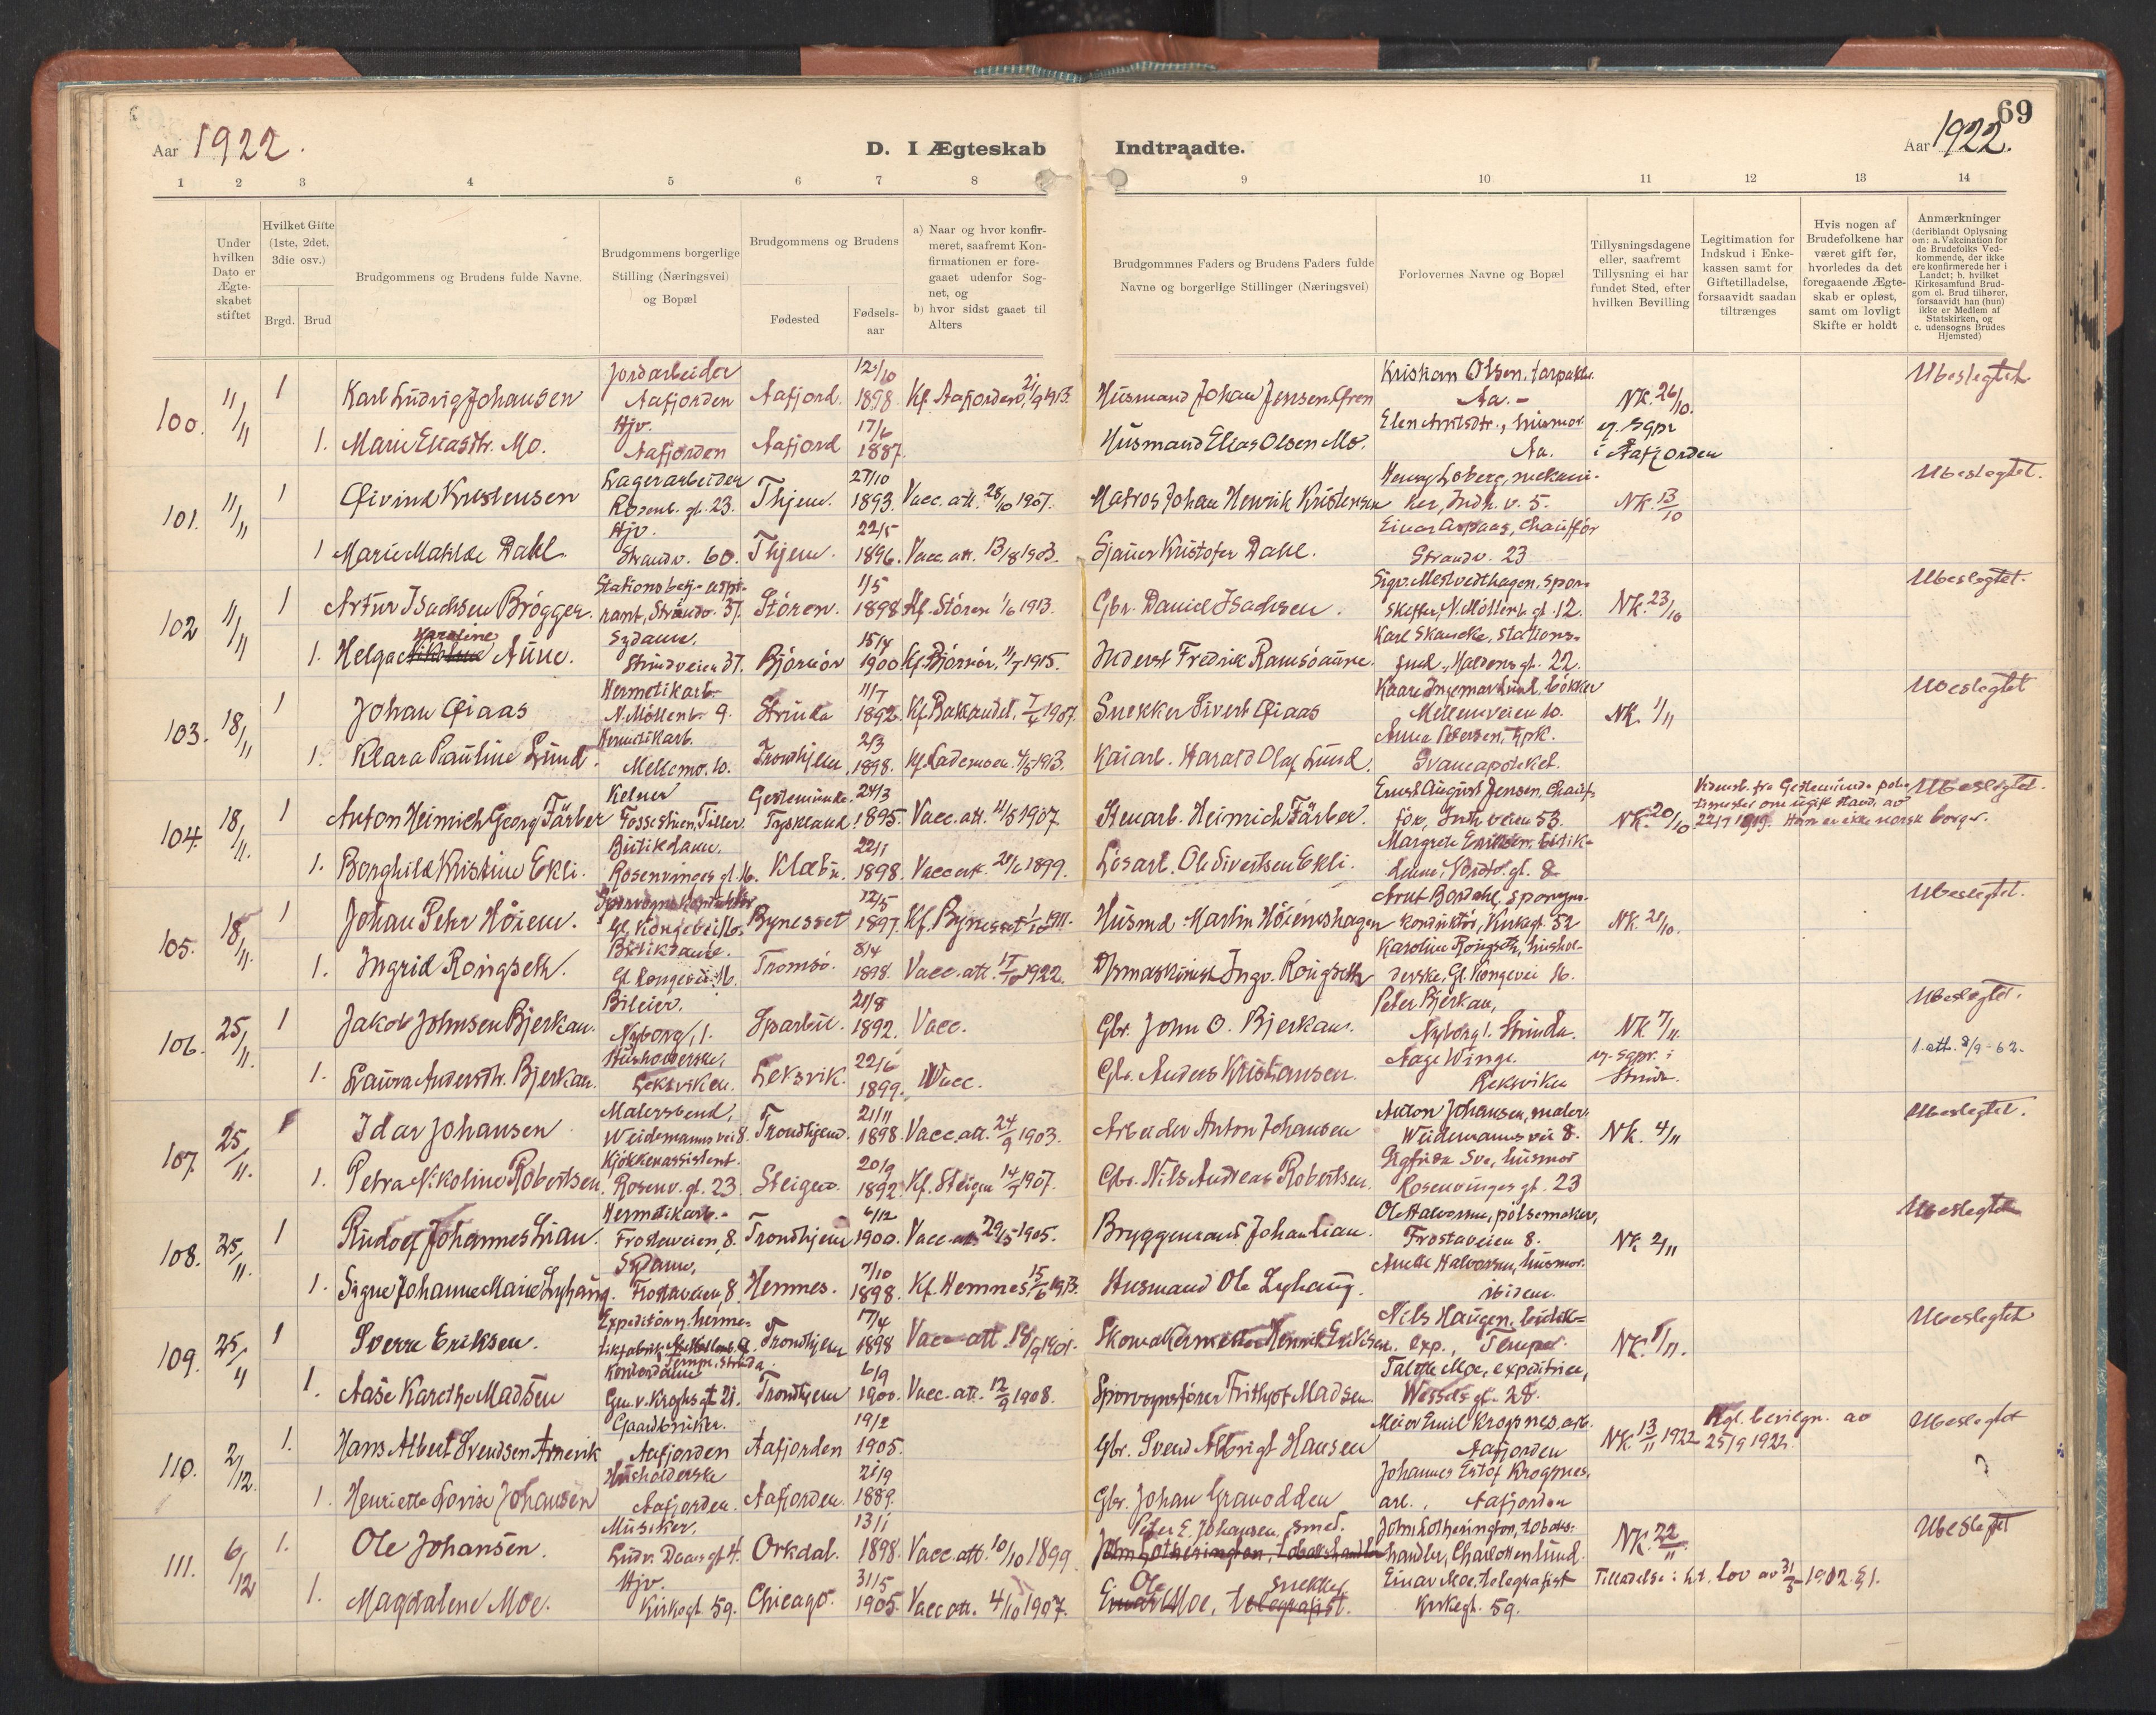 69
Aar 1922.
D. I Ægteskab Indtraadte.
Aar 1922.
1 2 3 4 5 6 7 8 9 10 11 12 13 14
Under hvilken Dato er Ægte-skabet stiftet
Hvilket Gifte (1ste, 2det, 3die osv.)
Brgd. Brud
Brudgommens og Brudens fulde Navne.
Brudgommens borgerlige Stilling (Næringsvei) og Bopæl
Brudgommens og Brudens
Fødested
Fødsels-aar
a) Naar og hvor konfir-meret, saafremt Kon-firmationen er fore-gaaet udenfor Sog-net, og
b) hvor sidst gaaet til Alters
Brudgommnes Faders og Brudens Faders fulde Navne og borgerlige Stillinger (Næringsvei)
Forlovernes Navne og Bopæl
Tillysningsdagene eller, saafremt Tillysning ei har fundet Sted, efter hvilken Bevilling
Legitimation for Indskud i Enke-kassen samt for Giftetilladelse, forsaavidt saadan tiltrænges
Hvis nogen af Brudefolkene har været gift før, hvorledes da det foregaaende Ægte-skab er opløst, samt om lovligt Skifte er holdt
Anmærkninger (deriblandt Oplysning om: a. Vakcination for de Brudefolks Ved-kommende, der ikke ere konfirmerede her i Landet; b. hvilket Kirkesamfund Brud-gom el. Brud tilhører, forsaavidt han (hun) ikke er Medlem af Statskirken, og c. udensogns Brudes Hjemsted)
100. 11/11 1 Karl Ludvig Johansen Jordarbeider Aafjorden Aafjord. 12/10 1898. Kf. Aafjorden 21/9 1913. Husmand Johan Jensen Gren Kristian Olsen, Aa. - NK. 26/10. Ubeslegtet.
1. Marie Eliasdtr. Mo. Hjv. Aafjorden Aafjord 17/6 1887. Husmand Elias Olsen Mo. Elen husmor. Aa. i Aafjorden
101. 11/11 1 Øivind Kristensen Lagerarbeider Rosenb. gt. 23. Thjem. 27/10 1893. Vacc. att. 28/10 1907. Matros Johan Henrik Kristensen Henry Loberg, mekani-ker, Indh. v. 5. NK. 13/10 Ubeslegtet.
1 Marie Matilde Dahl. Hjv. Strandv. 60. Thjem. 22/5 1896. Vacc. att. 13/8 1903. Sjauer Kristofer Dahl. Einar Aspaas, Chauffør Strandv. 23
102 11/11 1 Artur Isachsen Brøgger. Stationsbetj. aspi-rant, Strandv. 37. Støren. 1/5 1898 Kf. Støren 1/6 1913. Gbr. Daniel Isachsen. Sigv. spor-skifter, N. Møllenb. gt. 12. NK. 23/10 Ubeslegtet.
1. Helga Karoline Aune. Sydame. Strindveien 37. Bjørnør 15/4 1900 Kf. Bjørnør, 11/7 1915. Inderst Fredrik Ramsöaune. Karl Skancke, stations-fuld., Maddens gt. 22.
103. 18/11 1 Johan Øiaas Hermetikarb. N. Møllenb. 9. Strinda 11/7 1892. Kf. Baklandet, 7/4 1907. Snekker Sivert Øiaas Kaare Ingemar Lund, bøkker Mellemveien 10. NK. 1/11 Ubeslegtet
1. Klara Pauline Lund. Hermetikarb. Mellemv. 10. Trondhjem 2/3 1898. Kf. Lademoen. 4/5 1913. Kaiarb. Harald Olaf Lund. Anna Petersen, Tjpk. Svaneapoteket.
104. 18/11. 1 Anton Heinrich Georg Färber Kelner Fossestuen, Tiller. Geestemünde. Tyskland. 24/3 1895. Vacc. att. 4/5 1907. Stenarb. Heinrich Färber. Ernst August Jensen, Chauf-för, Indh. veien 53. NK. 20/10. Vidnesb. fra Geestemünde politimester om ugift stand, av 22/7 1919. Han er ikke norsk borger. Ubeslegtet.
1. Borghild Kristine Ekli. Butikdame. Rosenvinges gt. 16. Klæbu. 22/1 1898. Vacc. att. 1899. Løsarb. Ole Sivertsen Ekli. Margrete Eriksen, butik-dame, gt. 8
105. 18/11. 1 Johan Peter Høiem. Gl. Kongevei 16. Bynesset 12/5 1897. Kf. Bynesset 1/10 1911. Husmd. Martin Høiemshagen Arnt Bordahl, sporvgn-konduktör, Kirkegt. 52 NK. 21/10. Ubeslegtet.
1. Ingrid Rongseth. Butikdame. Gl. Kongevei 16. Tromsø. 8/4 1898. Vacc. att. 1922. Ingv. Rongseth Karoline Rongseth, hushol-derske, Gl. Kongevei 16.
106. 25/11. 1 Jakob Johnsen Bjerkan. Bileier. Nyborg, 1. Sparbu. 21/8 1892. Vacc. Gbr. John O. Bjerkan. Peter Bjerkan, Nyborg 1. Strinda. NK 7/11 Ubeslegtet.
1. Laura Andersdtr. Bjerkan. Husholderske, Leksviken. Leksvik. 22/6 1899. Vacc. Gbr. Anders Kristiansen. Aage Winge. Leksviken og sgpr. i Strinda. 1. att. 8/9-62.
107. 25/11. 1 Idar Johansen Malersvend, Weidemanns vei 8. Trondhjem. 21/11 1898 Vacc. att. 24/9 1903. Arbeider Anton Johansen Anton Johansen, maler. Weidemanns vei 8. NK. 4/11 Ubeslegtet.
1. Petra Nikoline Robertsen. Kjøkkenassistent. Rosenv. gt. 23. Steigen. 20/9 1892. Kf. Steigen 14/7 1907. Gbr. Nils Andreas Robertsen. Sigfrida Sve, husmor Rosenvinges gt. 23
108. 25/11. 1 Rudolf Johannes Lian. Hermetikarb. Frostaveien, 8. Trondhjem 6/12 1900. Vacc. att 29/5 1905. Bryggemand Johan Lian. Ole Halvorsen, pølsemaker, Frostaveien 8. NK 2/11 Ubeslegtet
1. Signe Johanne Marie Lyhaug. Sydame, Frostaveien, 8. Hemnes. 7/10 1898. Kf. Hemnes 15/6 1913. Husmand Ole Lyhaug. Anette Halvorsen, husmor. ibidem.
109. 25/11 1 Sverre Eriksen. Expeditör v. herme-tikfabrik, Tempe, Strinda. Trondhjem 17/4 1898 Vacc. att. 18/9 1901. Skomakermester Henrik Eriksen. Nils Haugen, butik-exp., Tempe. NK. 1/11. Ubeslegtet
1. Aase Karethe Madsen Kontordame Gen. v. Kroghs gt 21. Trondhjem 6/9 1900. Vacc. att. 12/9 1908. Sporvognsfører Frithjof Madsen. Moe, expeditrice, Wessels gt. 28.
110. 2/12. 1. Hans Albert Svendsen Arnevik Gaardbruker. Aafjorden Aafjorden 19/2 1905. Gbr. Svend Albrigt Hansen Meier Emil Krogsnes, arb. Aafjorden NK. 13/11 1922 Kgl. bevilgn. av 25/9 1922. Ubeslegtet
1. Henriette Lovise Johansen Husholderske Aafjorden. Aafjorden. 21/9 1889. Gbr. Johan Granodden Johannes Krogsnes, arb., Aafjorden
111. 6/12 1. Ole Johansen. Musiker. Ludv. Daaes gt 4. Orkdal. 13/1 1898. Vacc. att. 10/10 1899. Peter E. Johansen, smed. John Lotherington, tobakshandler John Lotherington, tobaks-handler, Charlottenlund. NK. 22/11. Ubeslegtet
1. Magdalene Moe. Hjv. Kirkegt. 59. Chicago. 31/5 1905. Vacc att. 4/10 1907. Ole snekker Einar Moe, telegrafist. Einar Moe, telegrafist Kirkegt. 59. Tilladelse i h.t. lov av 31/5-1902 § 1.